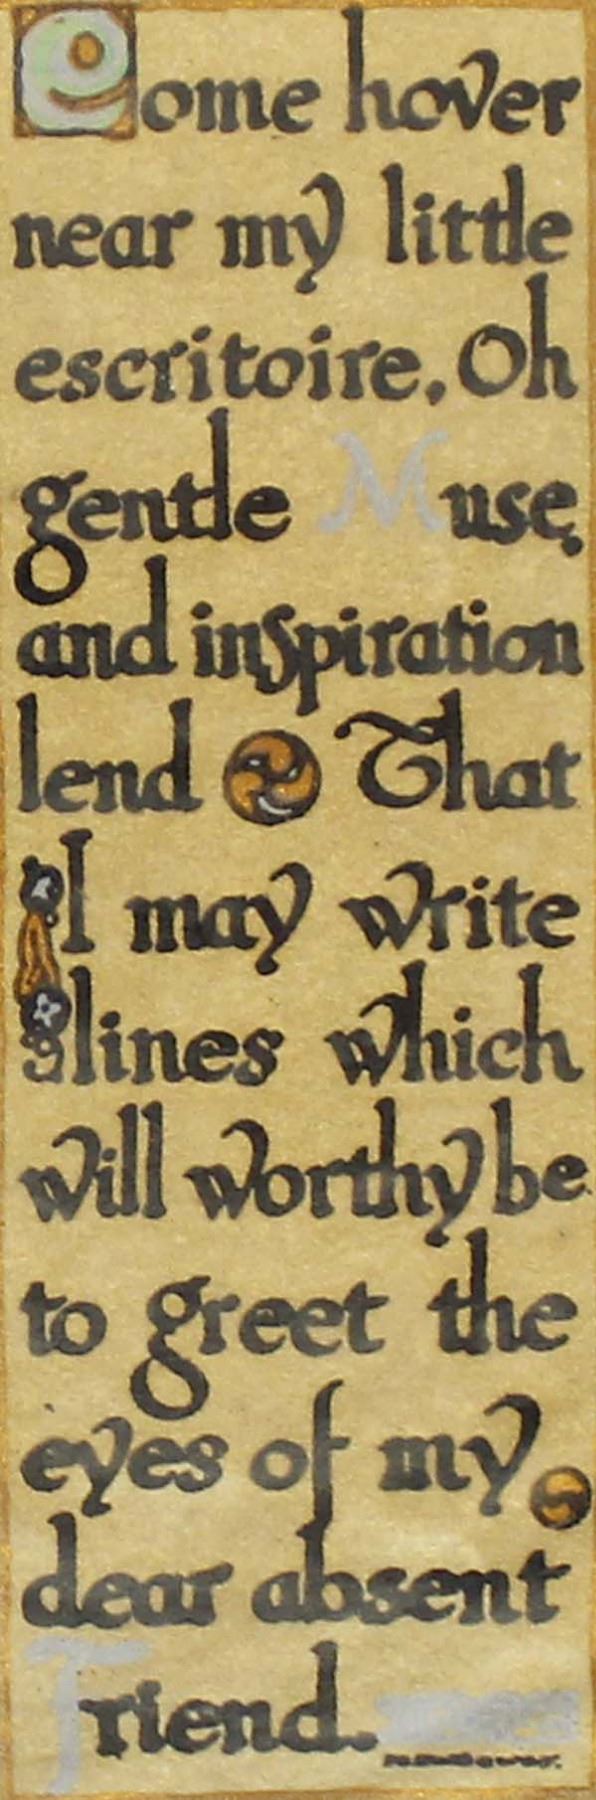 Come hover
near my little
escritoire, Oh
gentle Muse,
and inspiration
lend That
I may write
lines which
will worthy be
to greet the
eyes of my
dear absent
Friend.